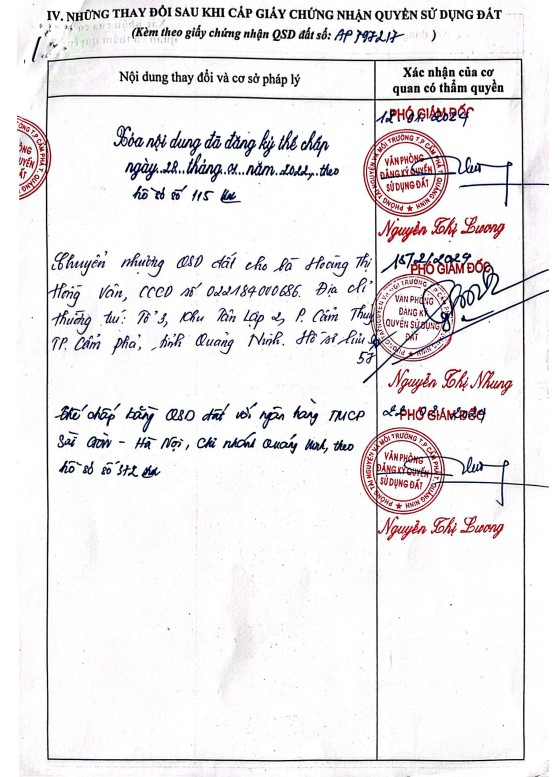 IV. NHỮNG THAY ĐỔI SAU KHI CẤP GIẤY CHỨNG NHẬN QUYỀN SỬ DỤNG ĐẤT
(Kèm theo giấy chứng nhận QSD đất số: AP 797217)
Nội dung thay đổi và cơ sở pháp lý
Xác nhận của cơ
quan có thẩm quyền
Xóa nội dung đã đăng ký thế chấp
ngày 28 tháng 01 năm 2022 theo
hồ sơ số 115
PHÓ GIÁM ĐỐC
VĂN PHÒNG
ĐĂNG KÝ QUYỀN
SỬ DỤNG ĐẤT
Nguyễn Thị Lương
Chuyển nhượng QSD đất cho bà Hoàng Thị
Hồng Vân, CCCD số 022184000686. Địa chỉ
thường trú: Tổ 3, Khu Tân Lập 2, P. Cẩm Thủy
TP. Cẩm phả, tỉnh Quảng Ninh. Hồ sơ lưu số
57
PHÓ GIÁM ĐỐC
VĂN PHÒNG
ĐĂNG KÝ
QUYỀN SỬ DỤNG
ĐẤT
Nguyễn Thị Nhung
Thế chấp bằng QSD đất với ngân hàng TMCP
Sài Gòn - Hà Nội, chi nhánh Quảng Ninh, theo
hồ sơ số 372
PHÓ GIÁM ĐỐC
PHÒNG TÀI NGUYÊN VÀ MÔI TRƯỜNG T.P CẨM PHẢ T. QUẢNG NINH
VĂN PHÒNG
ĐĂNG KÝ QUYỀN
SỬ DỤNG ĐẤT
Nguyễn Thị Lương